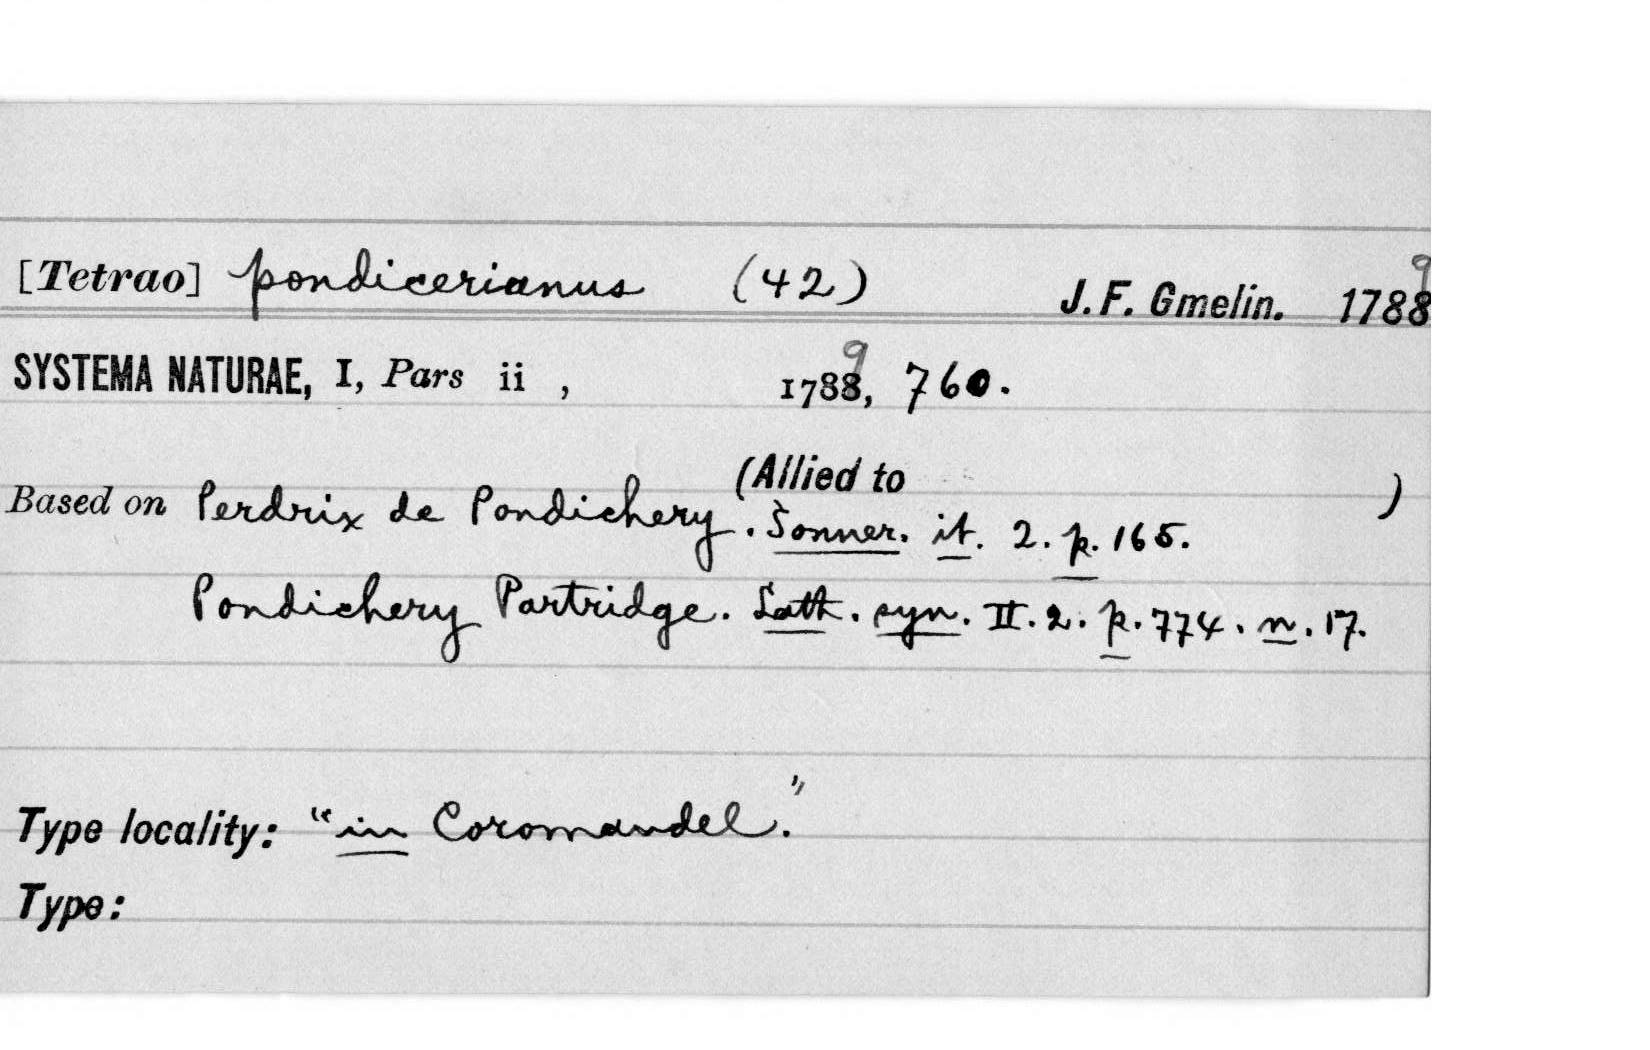 [Tetrao] pondicerianus (42) J. F. Gmelin. 1788 9
SYSTEMA NATURAE, I, Pars ii , 1788 9, 760.
(Allied to )
Based on Perdrix de Pondichery. Sonner. it. 2. p. 165.
Pondichery Partridge. Lath. syn. II. 2. p. 774. n. 17.
Type locality: "in Coromandel."
Type: